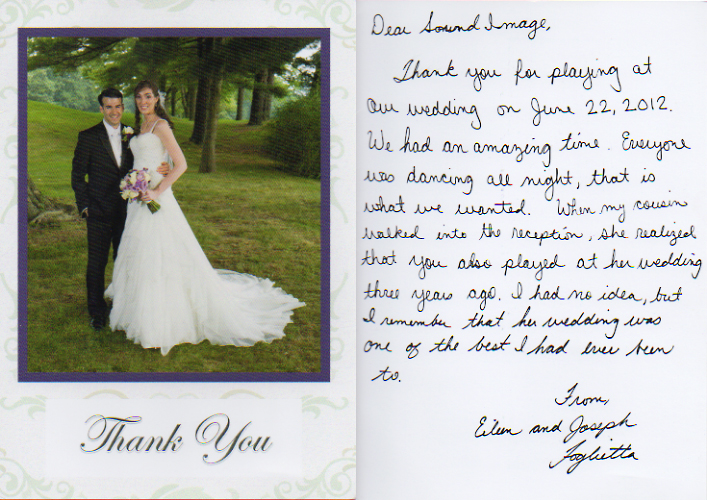 Thank You
Dear Sound Image,
Thank you for playing at
our wedding on June 22, 2012.
We had an amazing time. Everyone
was dancing all night, that is
what we wanted. When my cousin
walked into the reception, she realized
that you also played at her wedding
three years ago. I had no idea, but
I remember that her wedding was
one of the best I had ever been
to.
From,
Eileen and Joseph
Foglietta